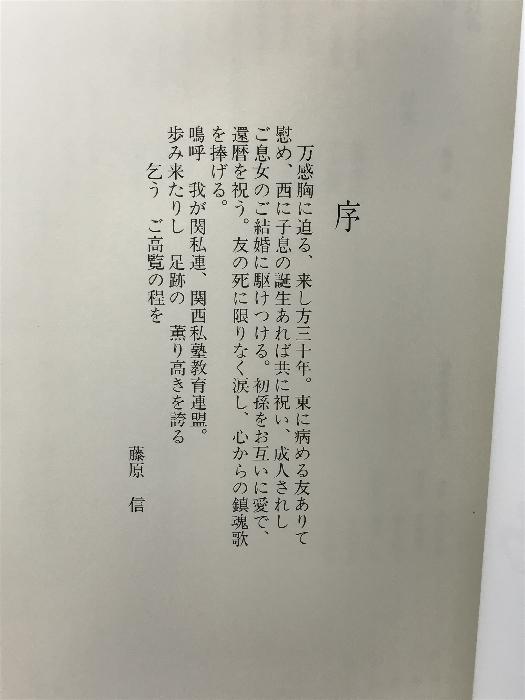 序
万感胸に迫る、来し方三十年。東に病める友ありて
慰め、西に子息の誕生あれば共に祝い、成人されし
ご息女のご結婚に駆けつける。初孫をお互いに愛で、
還暦を祝う。友の死に限りなく涙し、心からの鎮魂歌
を捧げる。
鳴呼　我が関私連、関西私塾教育連盟。
歩み来たりし　足跡の　薫り高きを誇る
乞う　ご高覧の程を
藤原　信